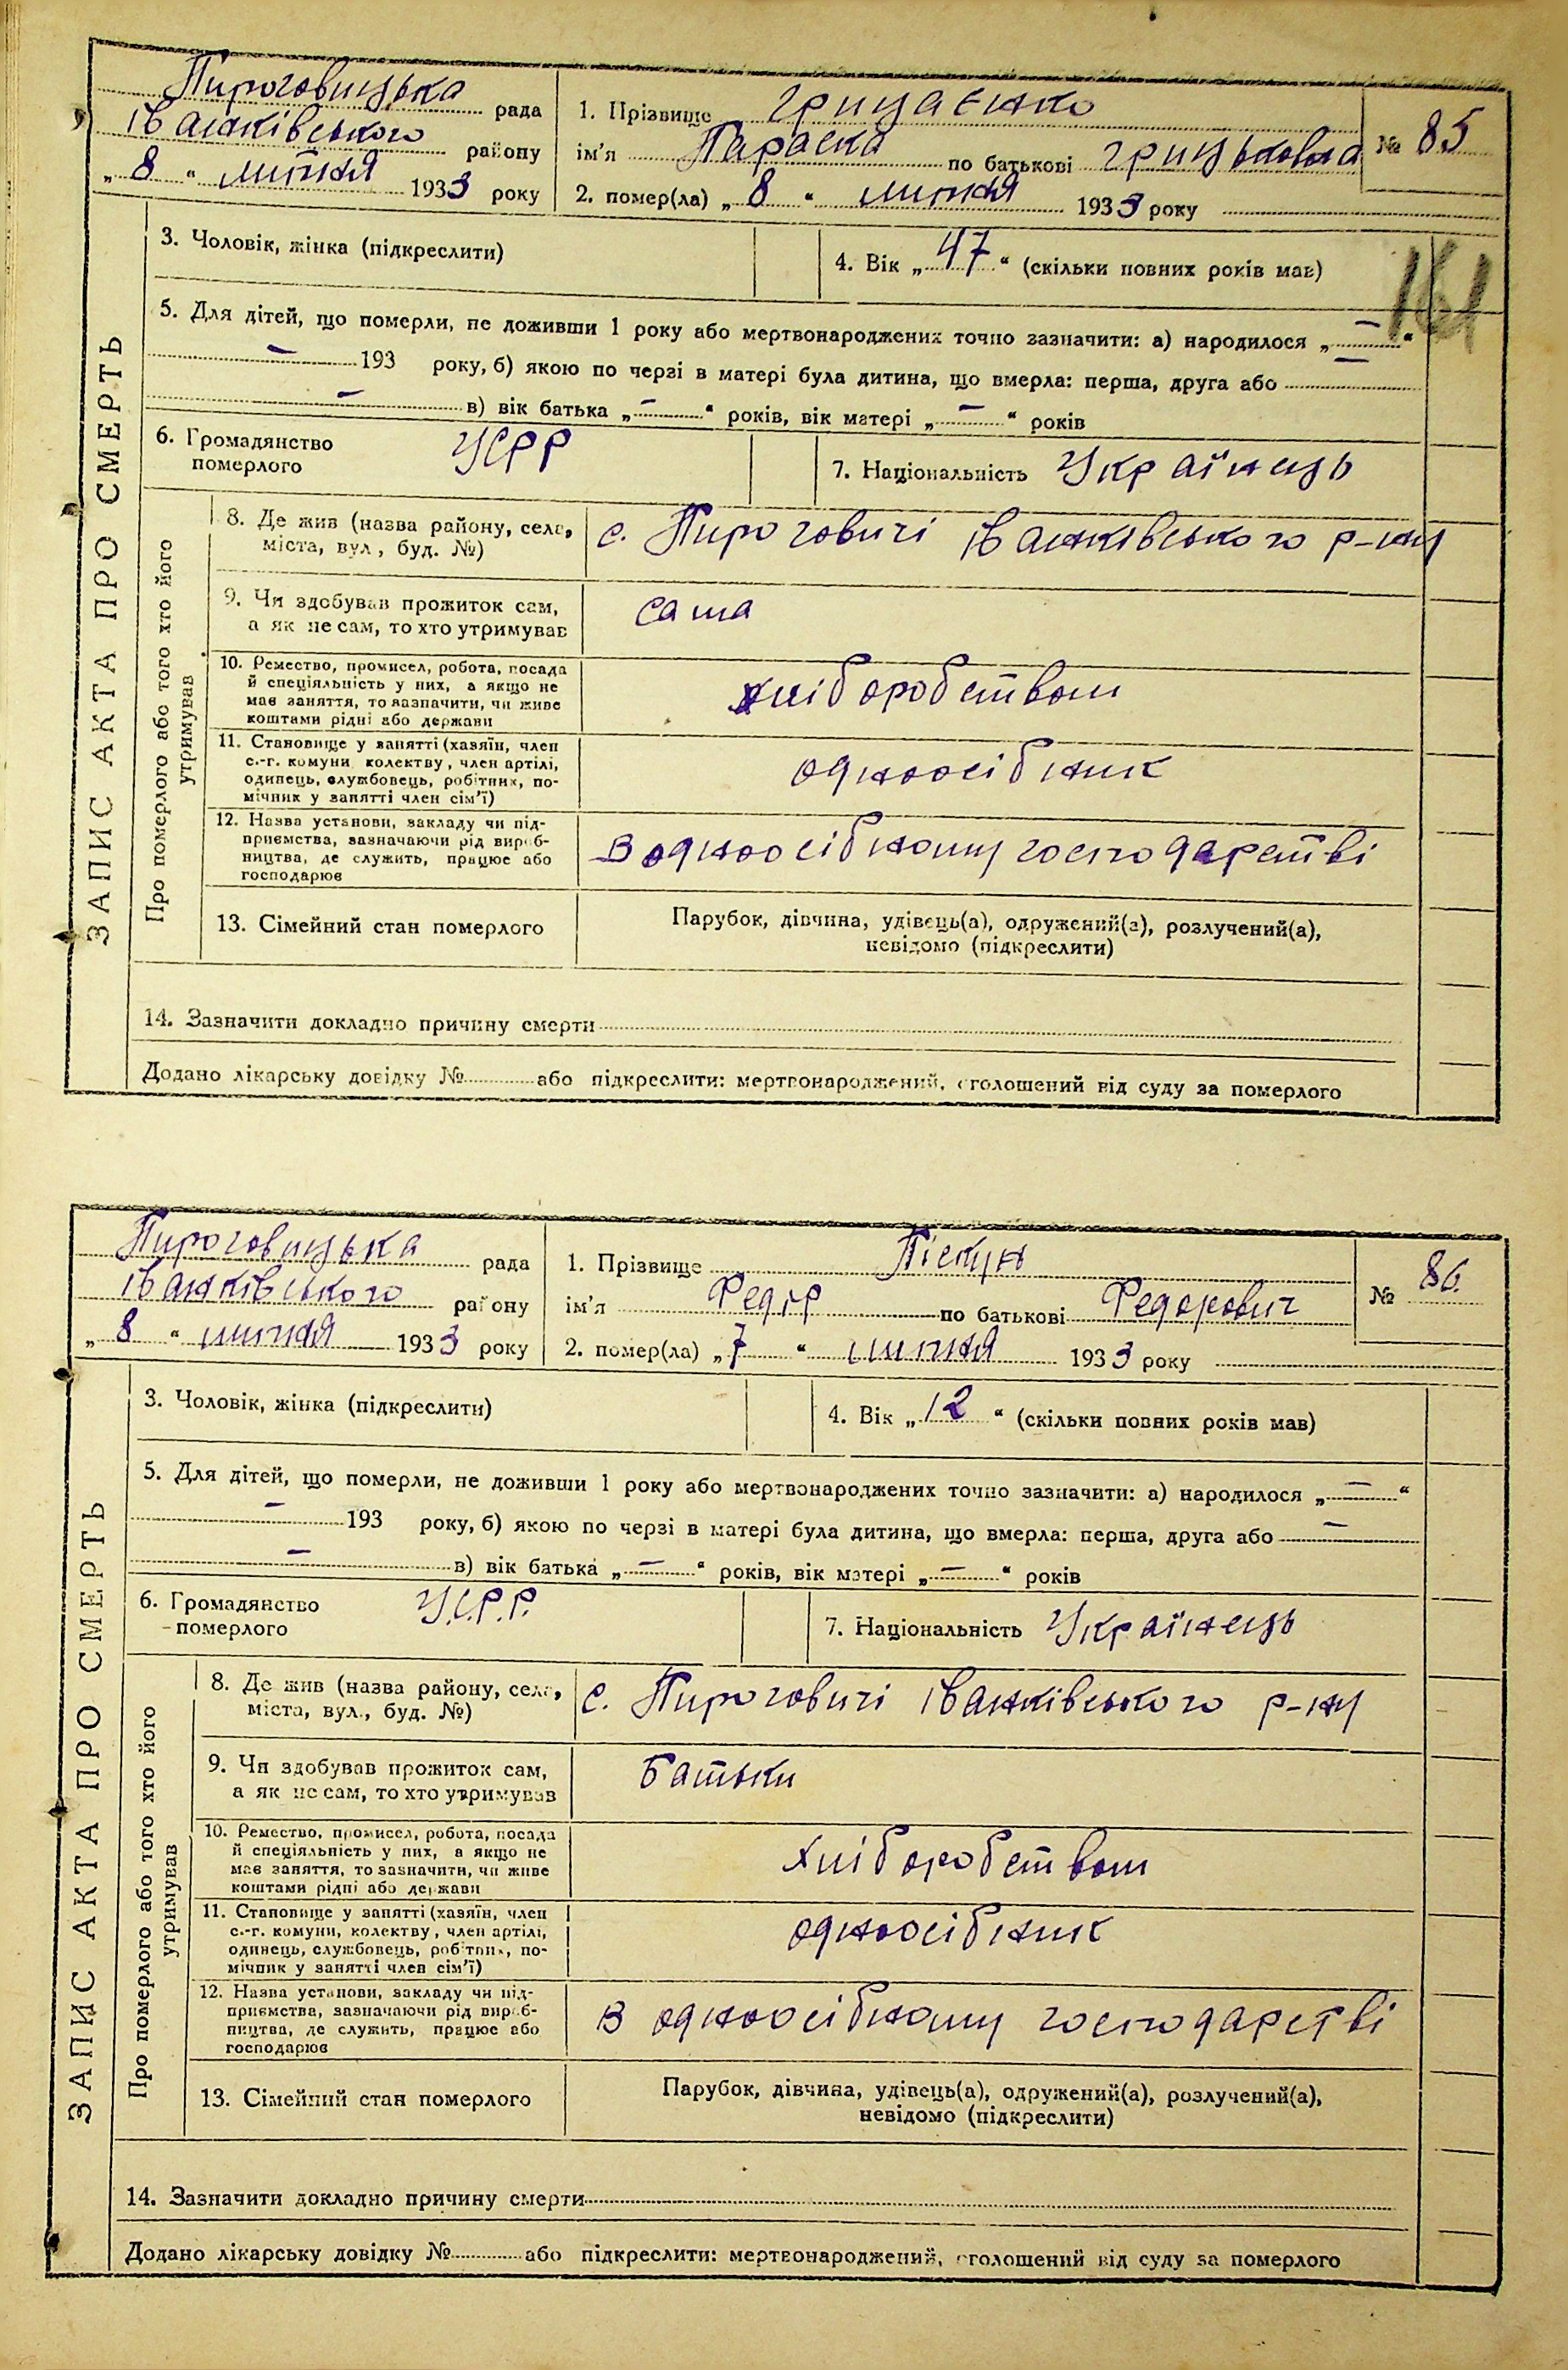 Пироговицька рада
Іванківського району
„ 8 “ липня 1933 року
1. Прізвище Грицаєнко
ім'я Параска по батькові Грицьковна
2. помер(ла) „ 8 “ липня 1933 року
№ 85
161
3. Чоловік, жінка (підкреслити)
4. Вік „ 47 “ (скільки повних років мав)
5. Для дітей, що померли, не доживши 1 року або мертвонароджених точно зазначити: а) народилося „ — “
— 193 року, б) якою по черзі в матері була дитина, що вмерла: перша, друга або —
— в) вік батька „ — “ років, вік матері „ — “ років
6. Громадянство померлого УСРР
7. Національність Українець
ЗАПИС АКТА ПРО СМЕРТЬ
Про померлого або того хто його утримував
8. Де жив (назва району, села,
міста, вул., буд. №)
с. Пироговичі Іванківського р-ну
9. Чи здобував прожиток сам,
а як не сам, то хто утримував
сама
10. Ремество, промисел, робота, посада
й спеціяльність у них, а якщо не
має заняття, то зазначити, чи живе
коштами рідні або держави
хліборобством
11. Становище у занятті (хазяїн, член
с.-г. комуни, колективу, член артілі,
одинець, службовець, робітник, по-
мічник у занятті член сім'ї)
одноосібник
12. Назва установи, закладу чи під-
приємства, зазначаючи рід вироб-
ництва, де служить, працює або
господарює
В одноосібному господарстві
13. Сімейний стан померлого
Парубок, дівчина, удівець(а), одружений(а), розлучений(а),
невідомо (підкреслити)
14. Зазначити докладно причину смерти
Додано лікарську довідку № або підкреслити: мертвонароджений, оголошений від суду за померлого
Пироговицька рада
Іванківського району
„ 8 “ липня 1933 року
1. Прізвище Піскун
ім'я Федір по батькові Федорович
2. помер(ла) „ 7 “ липня 1933 року
№ 86.
3. Чоловік, жінка (підкреслити)
4. Вік „ 12 “ (скільки повних років мав)
5. Для дітей, що померли, не доживши 1 року або мертвонароджених точно зазначити: а) народилося „ — “
— 193 року, б) якою по черзі в матері була дитина, що вмерла: перша, друга або —
— в) вік батька „ — “ років, вік матері „ — “ років
6. Громадянство померлого У.С.Р.Р.
7. Національність Українець
ЗАПИС АКТА ПРО СМЕРТЬ
Про померлого або того хто його утримував
8. Де жив (назва району, села,
міста, вул., буд. №)
с. Пироговичі Іванківського р-ну
9. Чи здобував прожиток сам,
а як не сам, то хто утримував
Батьки
10. Ремество, промисел, робота, посада
й спеціяльність у них, а якщо не
має заняття, то зазначити, чи живе
коштами рідні або держави
Хліборобством
11. Становище у занятті (хазяїн, член
с.-г. комуни, колективу, член артілі,
одинець, службовець, робітник, по-
мічник у занятті член сім'ї)
одноосібник
12. Назва установи, закладу чи під-
приємства, зазначаючи рід вироб-
ництва, де служить, працює або
господарює
В одноосібному господарстві
13. Сімейний стан померлого
Парубок, дівчина, удівець(а), одружений(а), розлучений(а),
невідомо (підкреслити)
14. Зазначити докладно причину смерти
Додано лікарську довідку № або підкреслити: мертвонароджений, оголошений від суду за померлого